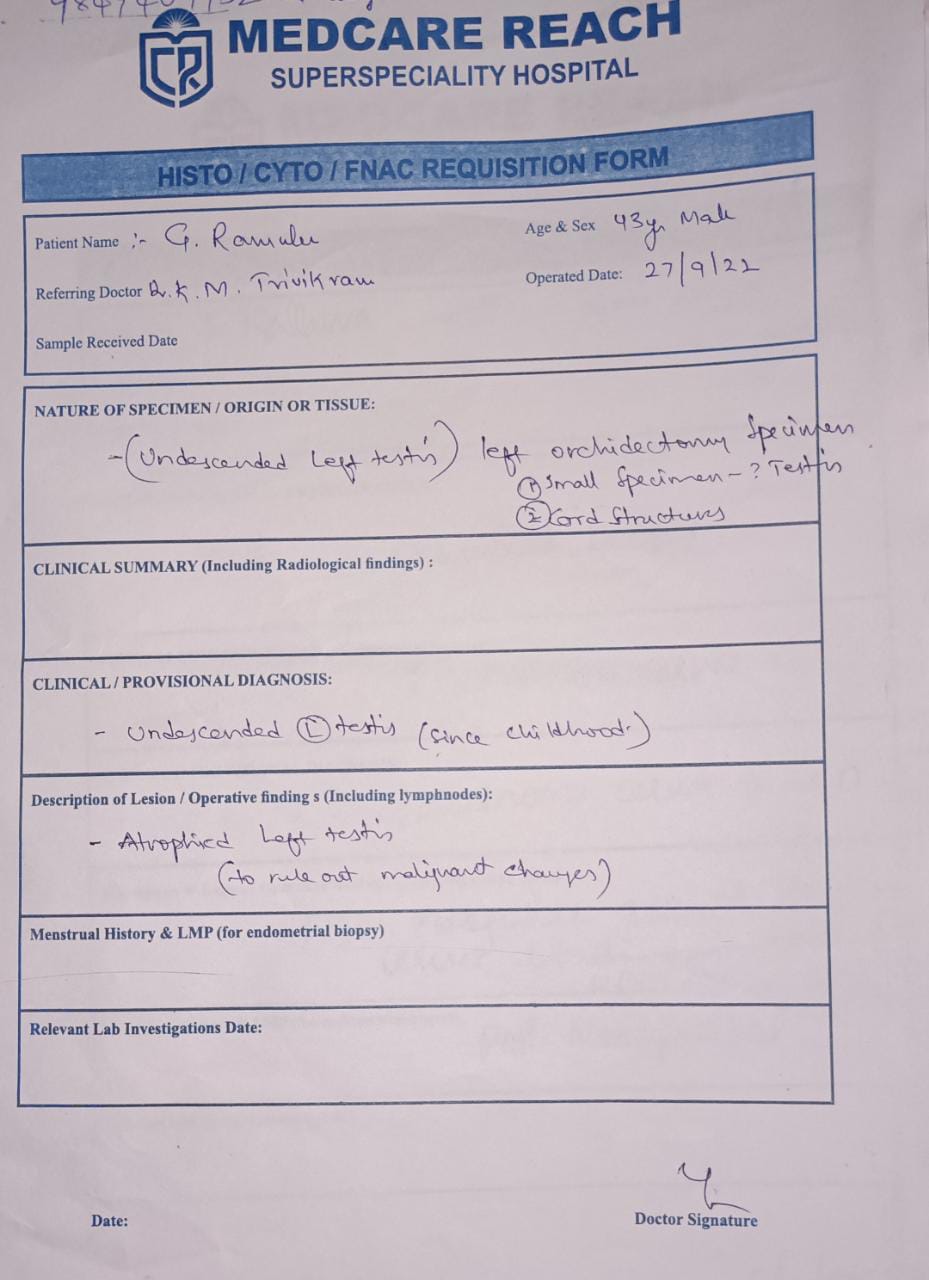 MEDCARE REACH
SUPERSPECIALITY HOSPITAL
HISTO / CYTO / FNAC REQUISITION FORM
Patient Name :- G. Ramulu
Age & Sex 43y, Male
Referring Doctor Dr. K. M. Trivikram
Operated Date: 27/9/22
Sample Received Date
NATURE OF SPECIMEN / ORIGIN OR TISSUE:
- (Undescended Left testis) left orchidectomy Specimen
① Small Specimen - ? Testis
② Cord Structures
CLINICAL SUMMARY (Including Radiological findings) :
CLINICAL / PROVISIONAL DIAGNOSIS:
- Undescended Ⓛ testis (Since childhood.)
Description of Lesion / Operative finding s (Including lymphnodes):
- Atrophied Left testis
(to rule out malignant changes)
Menstrual History & LMP (for endometrial biopsy)
Relevant Lab Investigations Date:
Date:
Doctor Signature